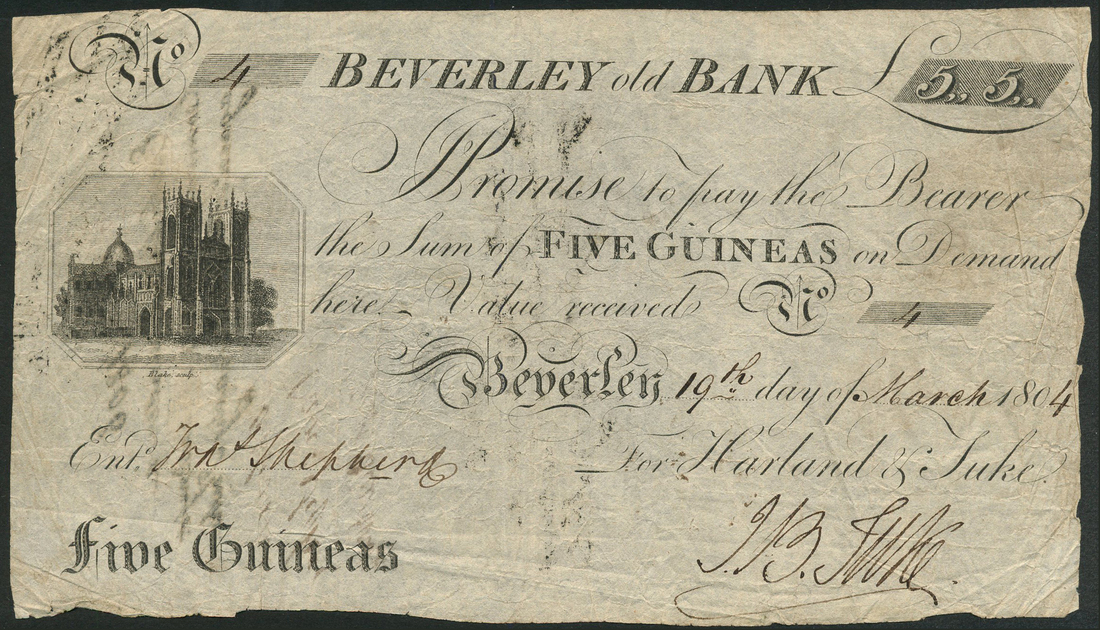 No 4 BEVERLEY old BANK £ 5,, 5,,
I Promise to pay the Bearer
the Sum of FIVE GUINEAS on Demand
here. Value received No 4
Blake sculp.
Beverley 19th day of March 1804
Entd. Thos Shepherd For Harland & Tuke.
J. B. Tuke
Five Guineas